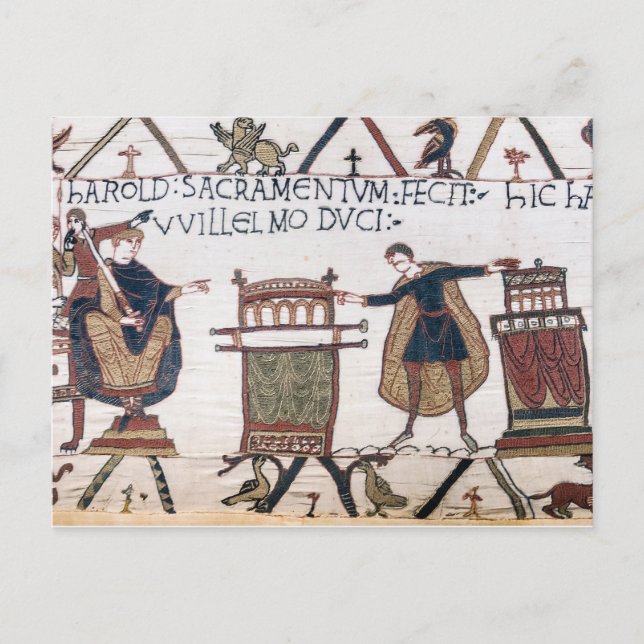 hAROLD : SACRAMENTVM : FECIT :- hIC hA
VVILLELMO DVCI :-